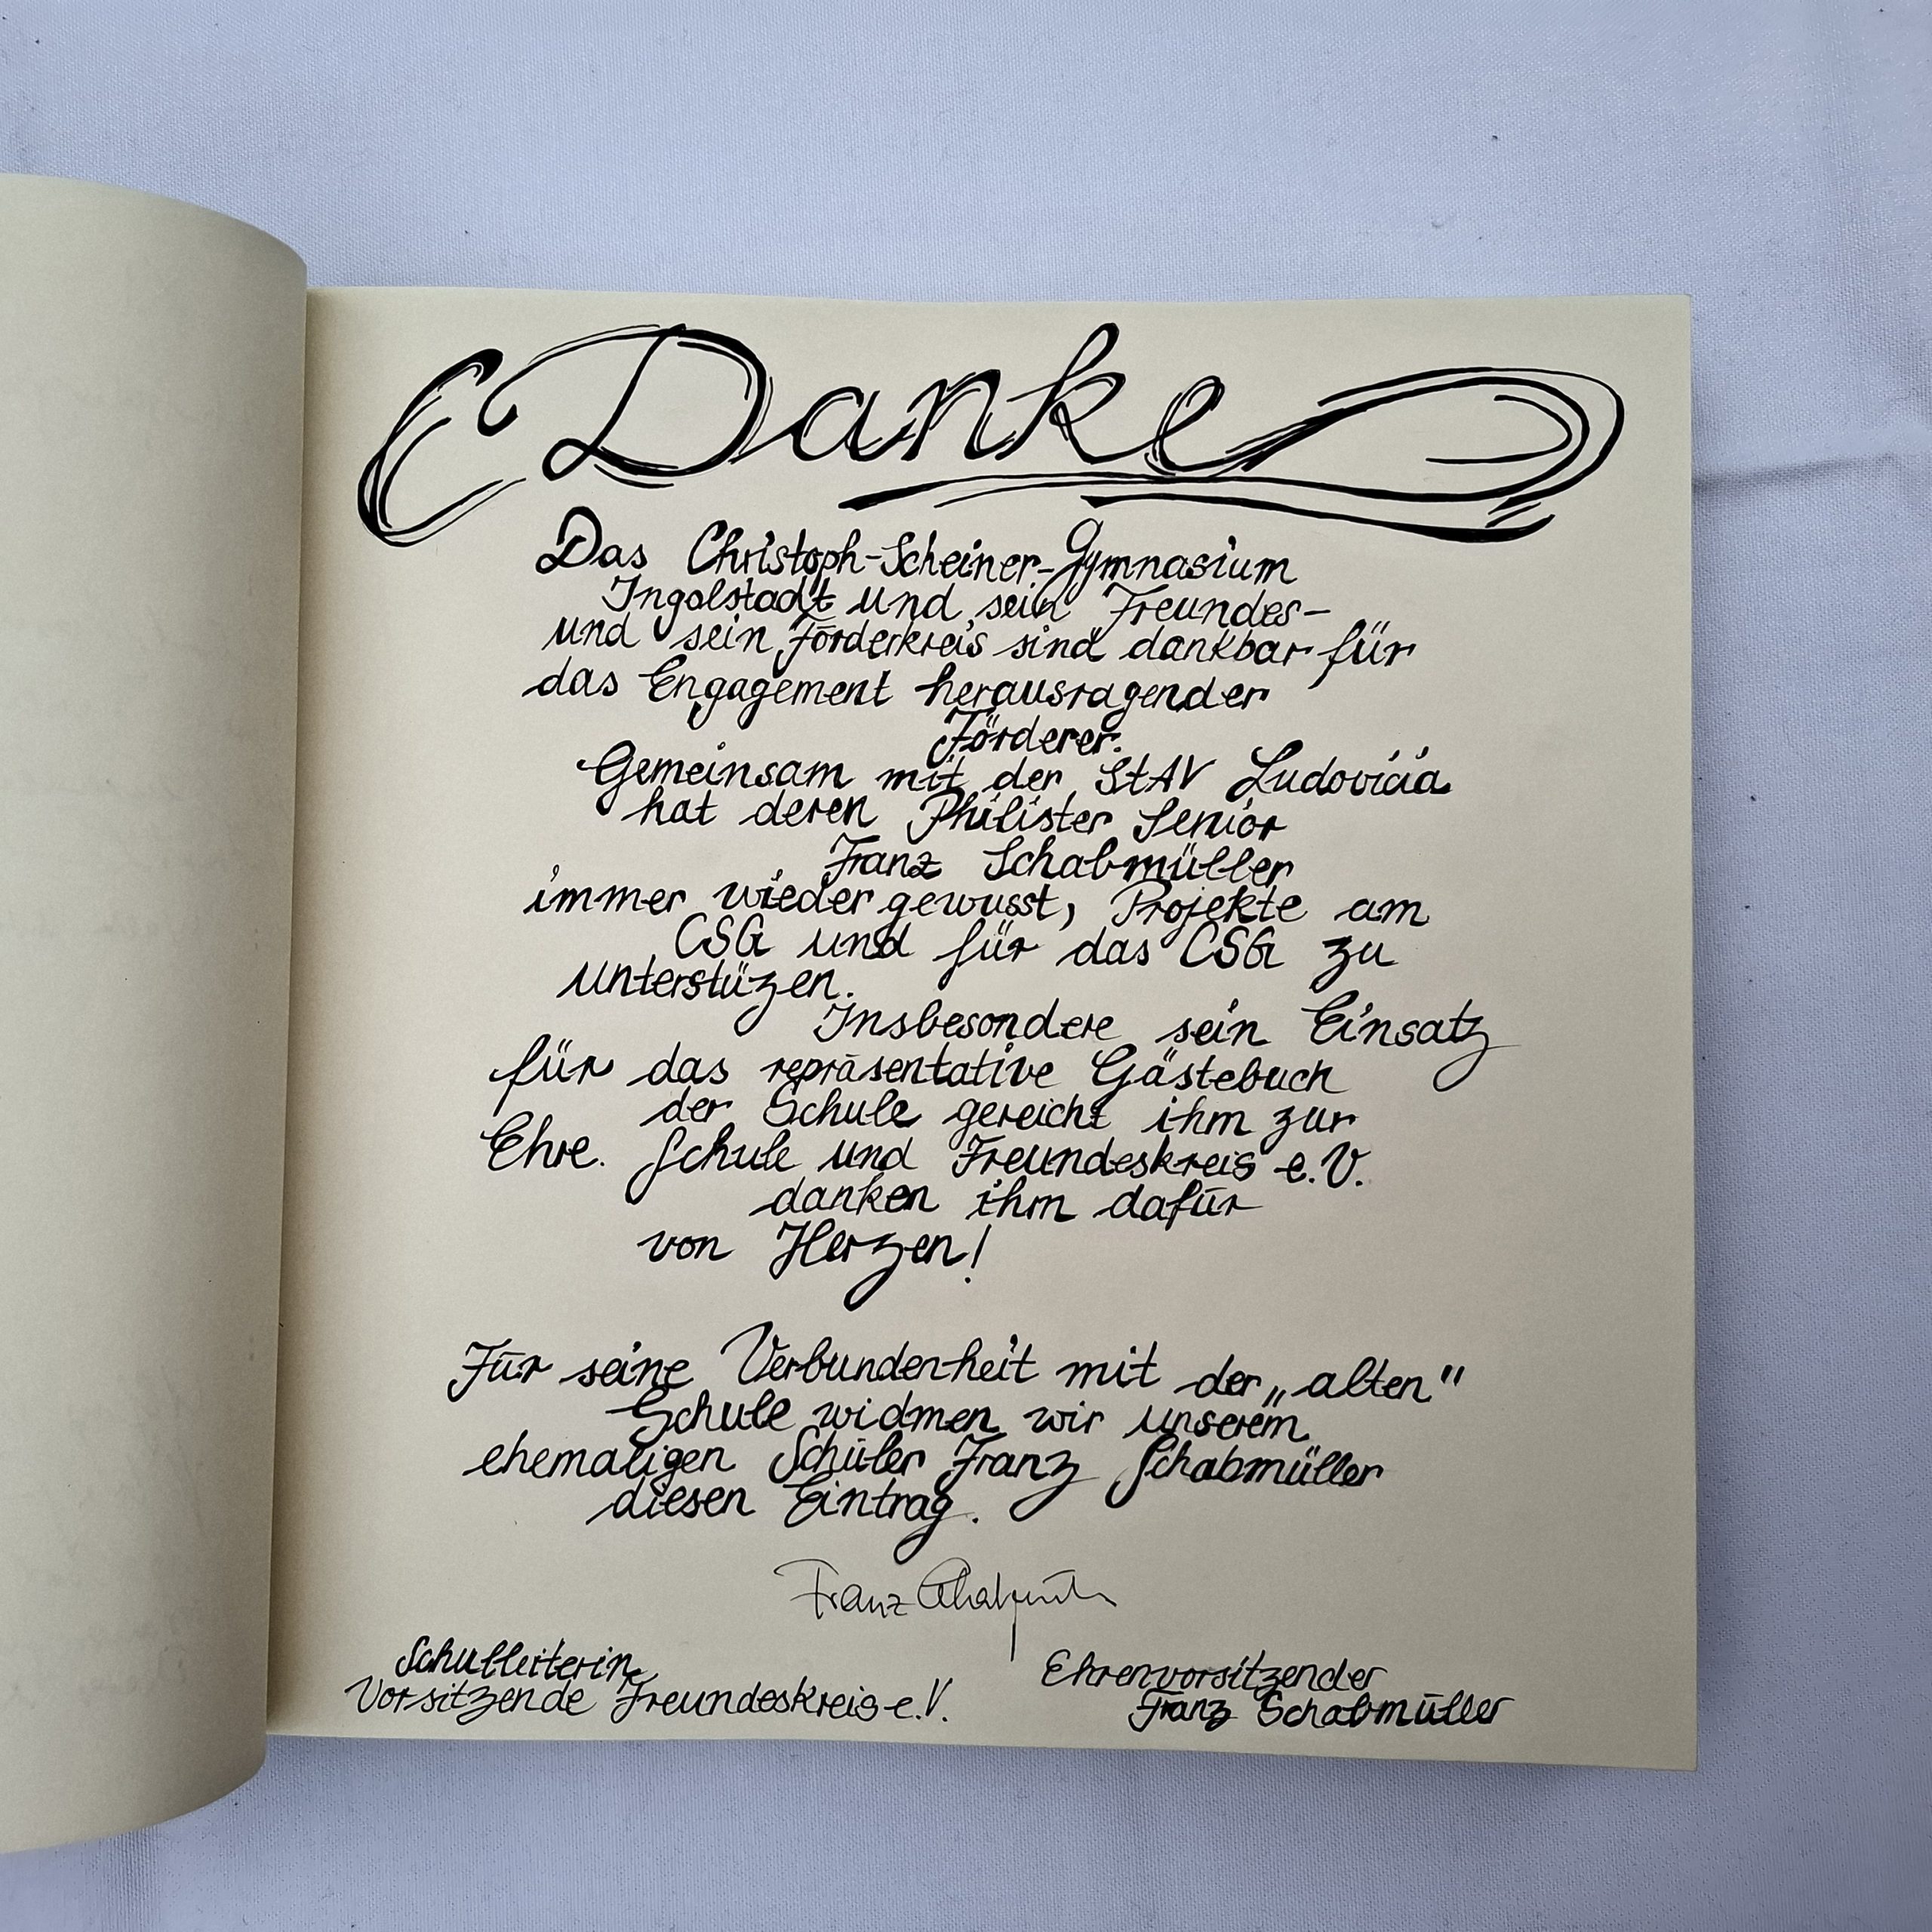 Danke
Das Christoph-Scheiner-Gymnasium
Ingolstadt und sein Freundes-
und sein Förderkreis sind dankbar für
das Engagement herausragender
Förderer.
Gemeinsam mit der StAV Ludovicia
hat deren Philister Senior
Franz Schabmüller
immer wieder gewusst, Projekte am
CSG und für das CSG zu
unterstüzen.
Insbesondere sein Einsatz
für das repräsentative Gästebuch
der Schule gereicht ihm zur
Ehre. Schule und Freundeskreis e.V.
danken ihm dafür
von Herzen!
Für seine Verbundenheit mit der „alten"
Schule widmen wir unserem
ehemaligen Schüler Franz Schabmüller
diesen Eintrag.
Franz Schabmüller
Schulleiterin
Vorsitzende Freundeskreis e.V.
Ehrenvorsitzender
Franz Schabmüller